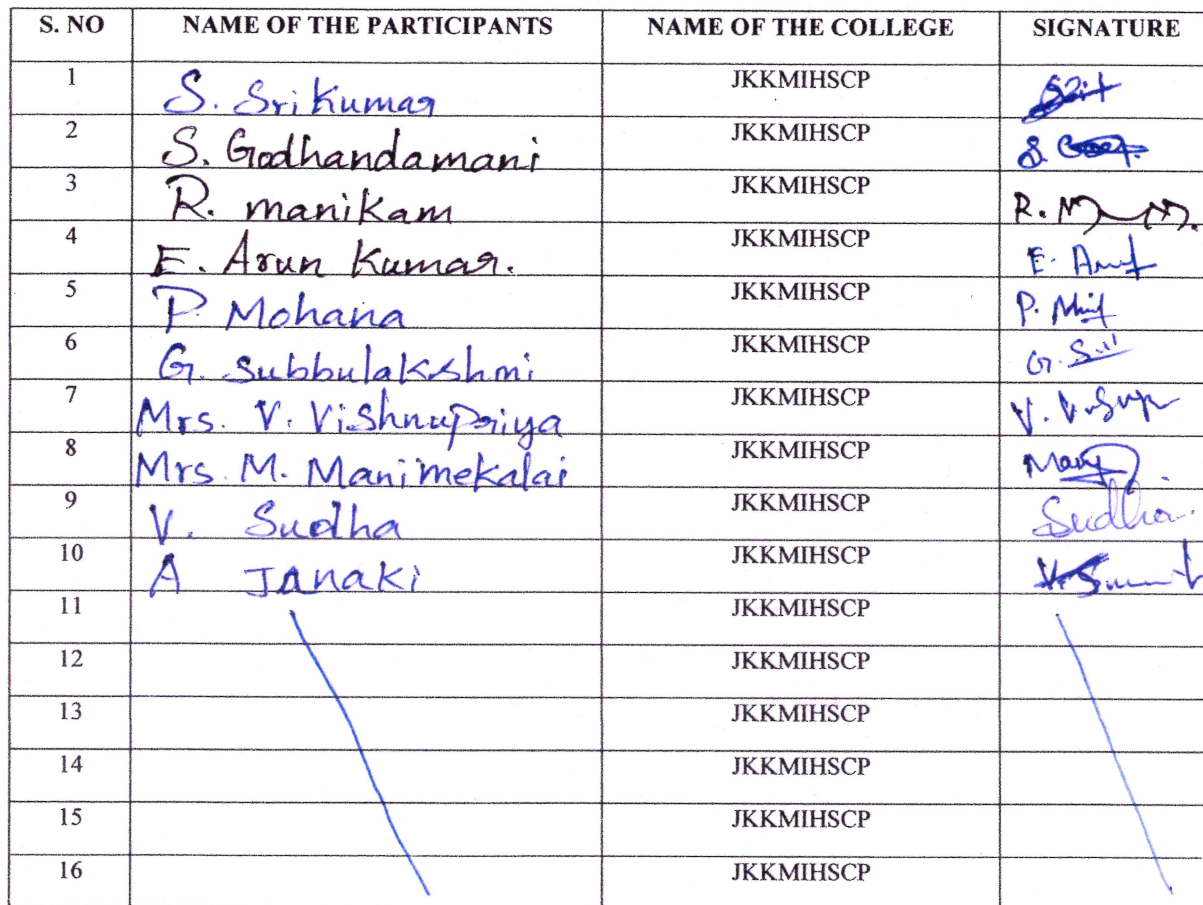 S. NO NAME OF THE PARTICIPANTS NAME OF THE COLLEGE SIGNATURE
1 S. Sri Kumar JKKMIHSCP
2 S. Godhandamani JKKMIHSCP
3 R. manikam JKKMIHSCP R.
4 E. Arun Kumar. JKKMIHSCP E.
5 P. Mohana JKKMIHSCP P.
6 G. Subbulakshmi JKKMIHSCP G.
7 Mrs. V. Vishnupriya JKKMIHSCP V.
8 Mrs. M. Manimekalai JKKMIHSCP
9 V. Sudha JKKMIHSCP Sudha.
10 A JANAKi JKKMIHSCP
11 JKKMIHSCP
12 JKKMIHSCP
13 JKKMIHSCP
14 JKKMIHSCP
15 JKKMIHSCP
16 JKKMIHSCP